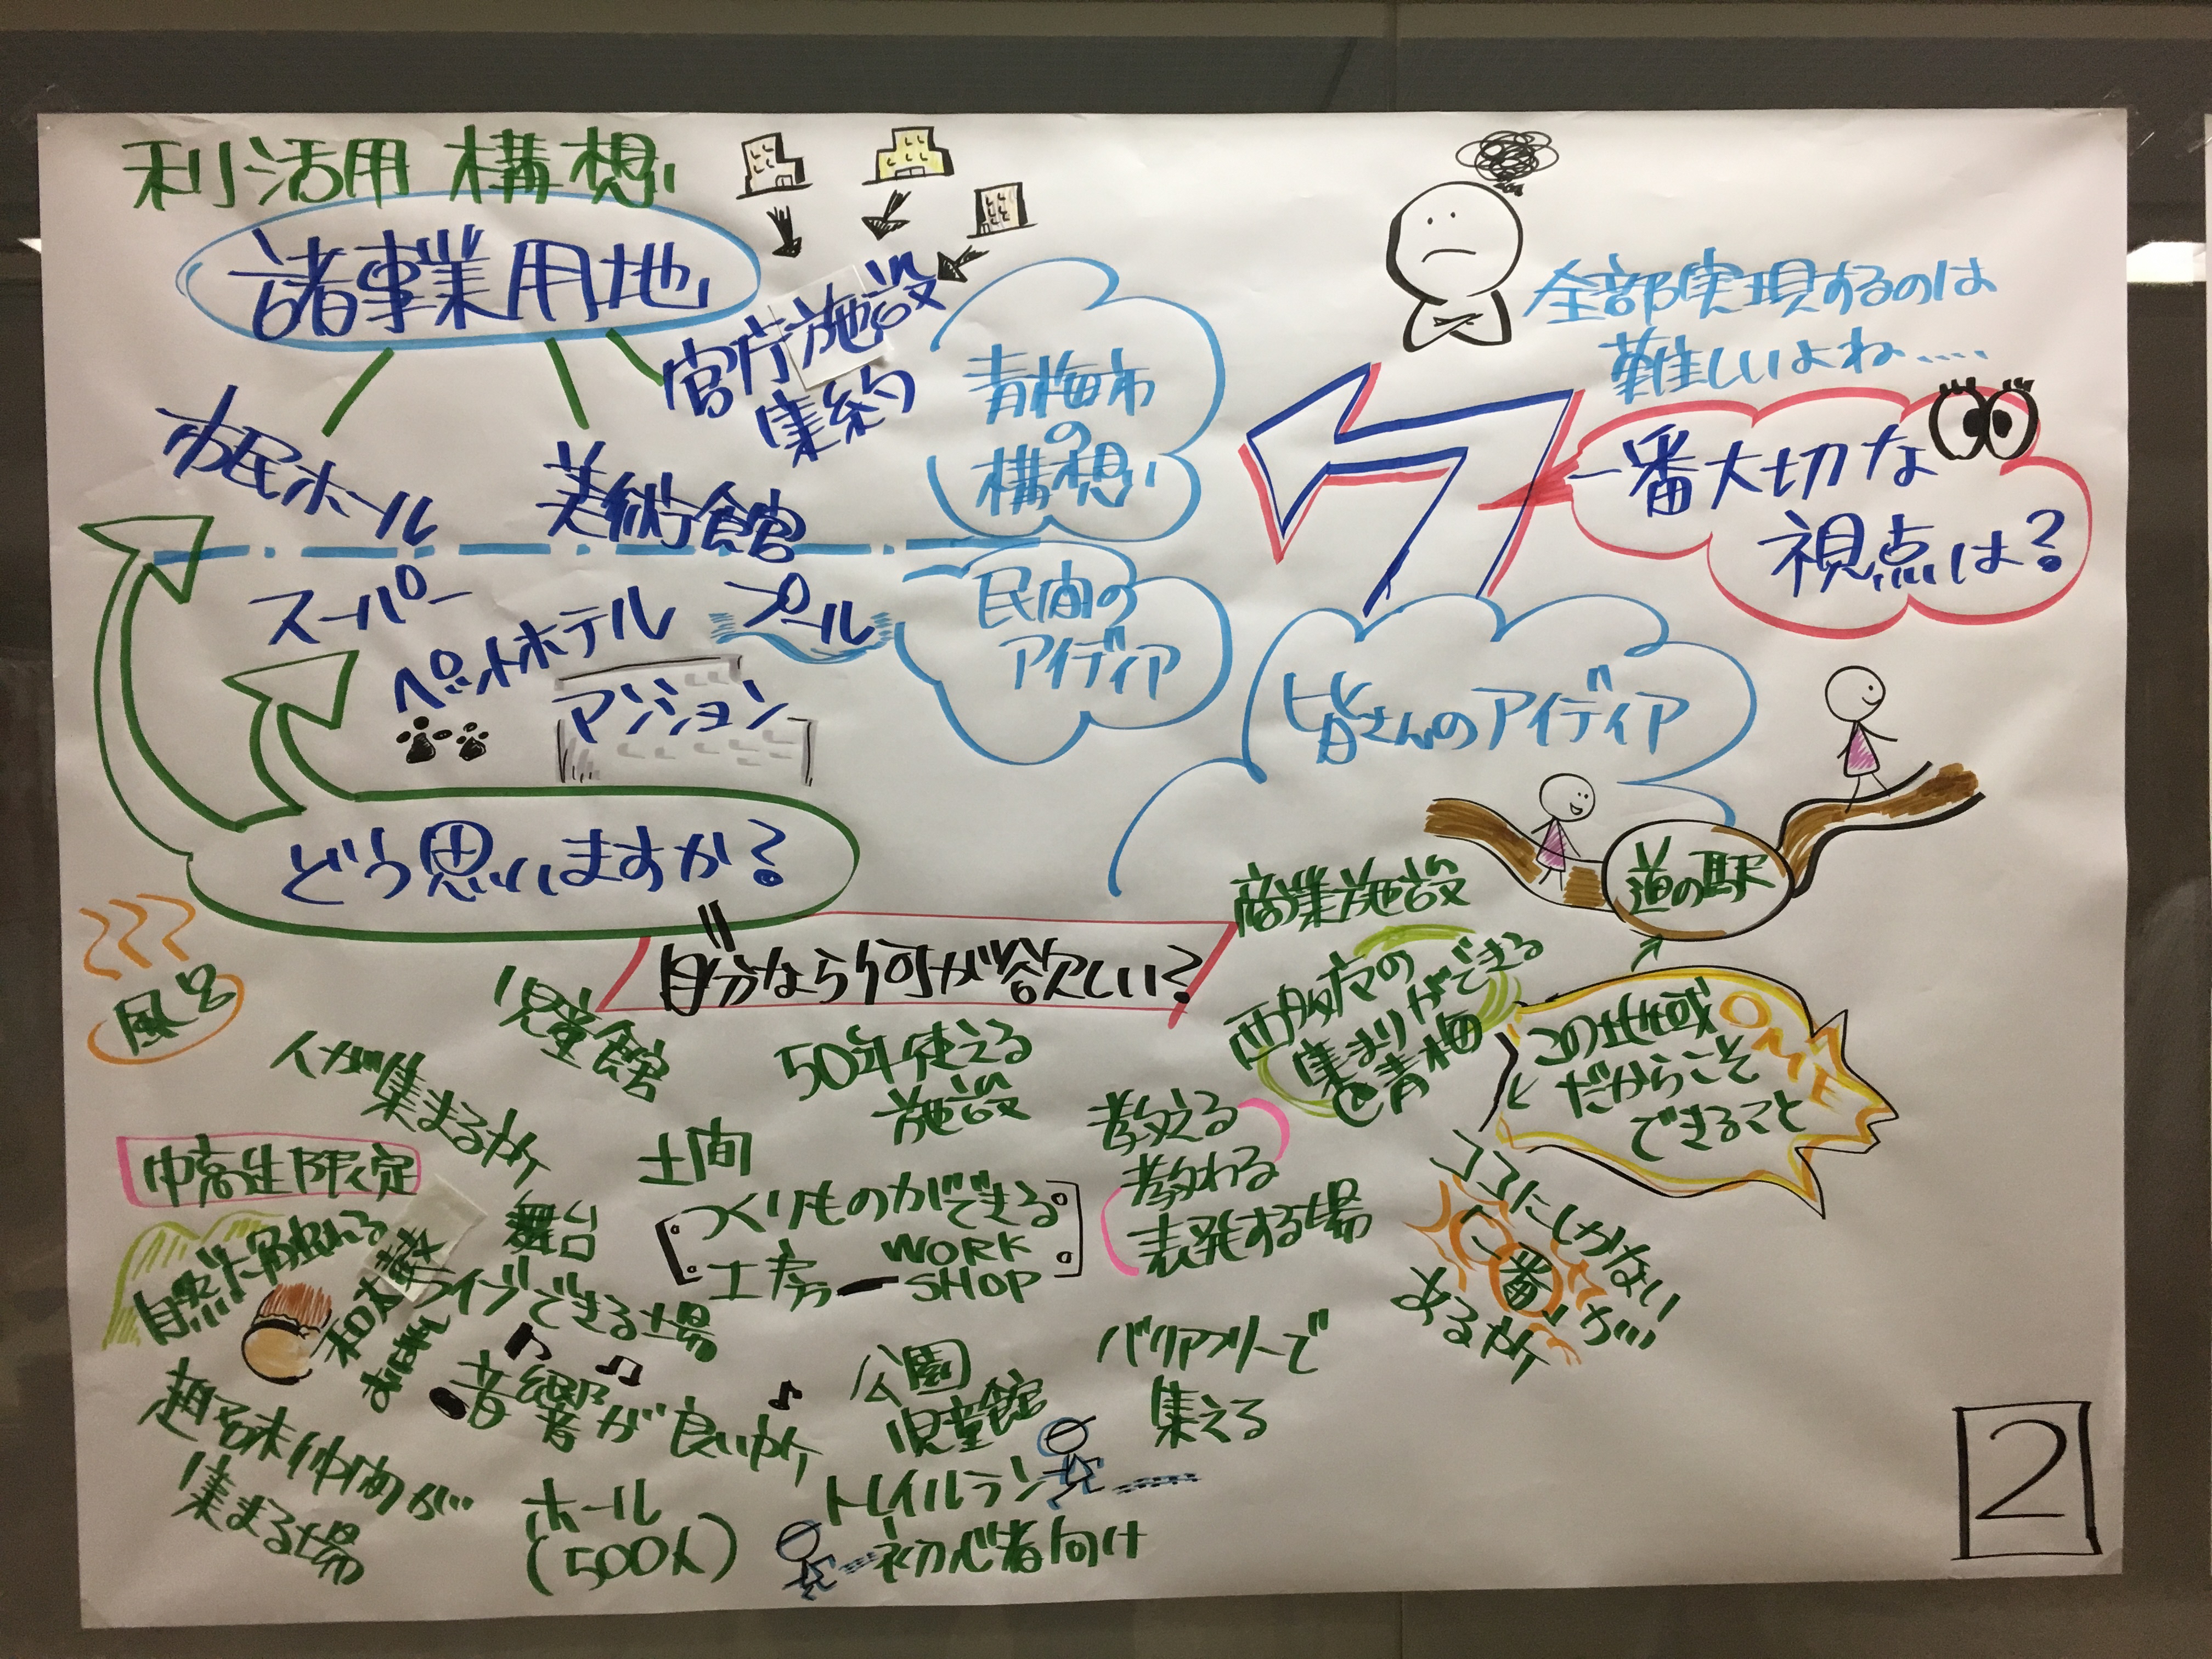 利活用 構想
諸事業用地
官庁施設
集約
市民ホール
美術館
青梅市
の
構想
スーパー
ペットホテル
プール
マンション
民間の
アイディア
どう思いますか?
全部実現するのは
難しいよね‥‥
一番大切な
視点は?
皆さんのアイディア
自分なら何が欲しい?
風呂
児童館
人が集まる所
50年使える
施設
中高生限定
土間
舞台
つくりものができる
工房ー WORK
SHOP
自然に触れる
和太鼓
お囃子
ライブできる場
音響が良い所
趣味仲間が
集まる場
ホール
(500人)
公園
児童館
トレイルラン
初心者向け
バリアフリーで
集える
教える
教わる
発表する場
商業施設
西多摩の
集まりができる
青梅
道の駅
この地域
だからこそ
できること
OME
ココにしかない
"一番"が
ある所
2